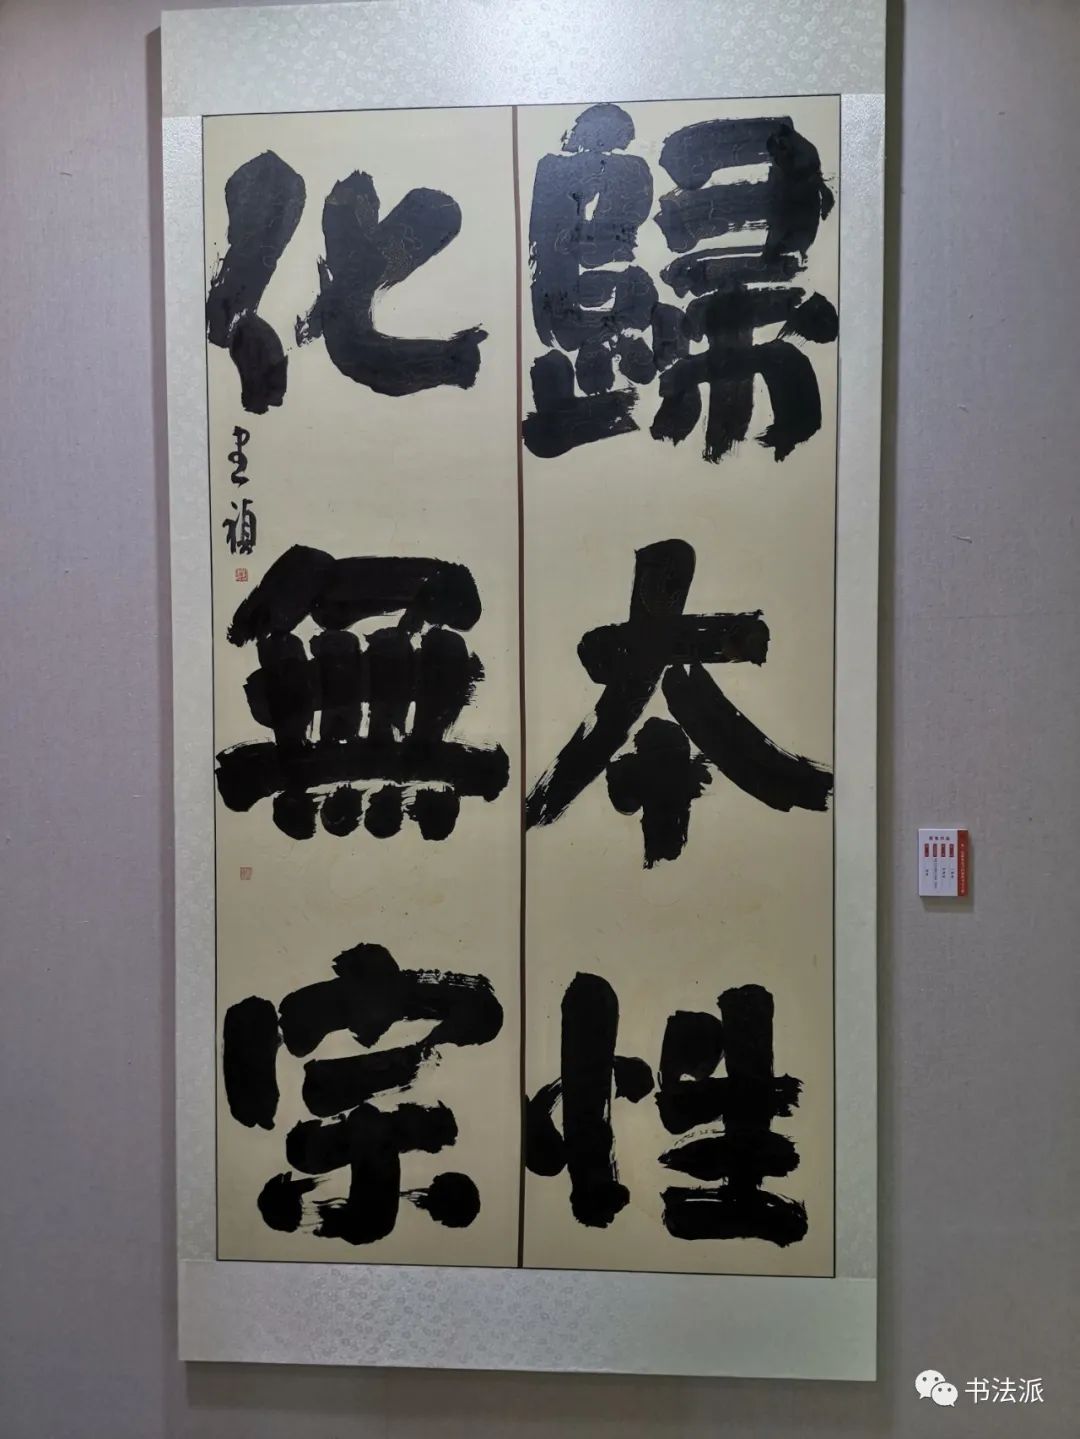 歸本性
化無宗
书法派